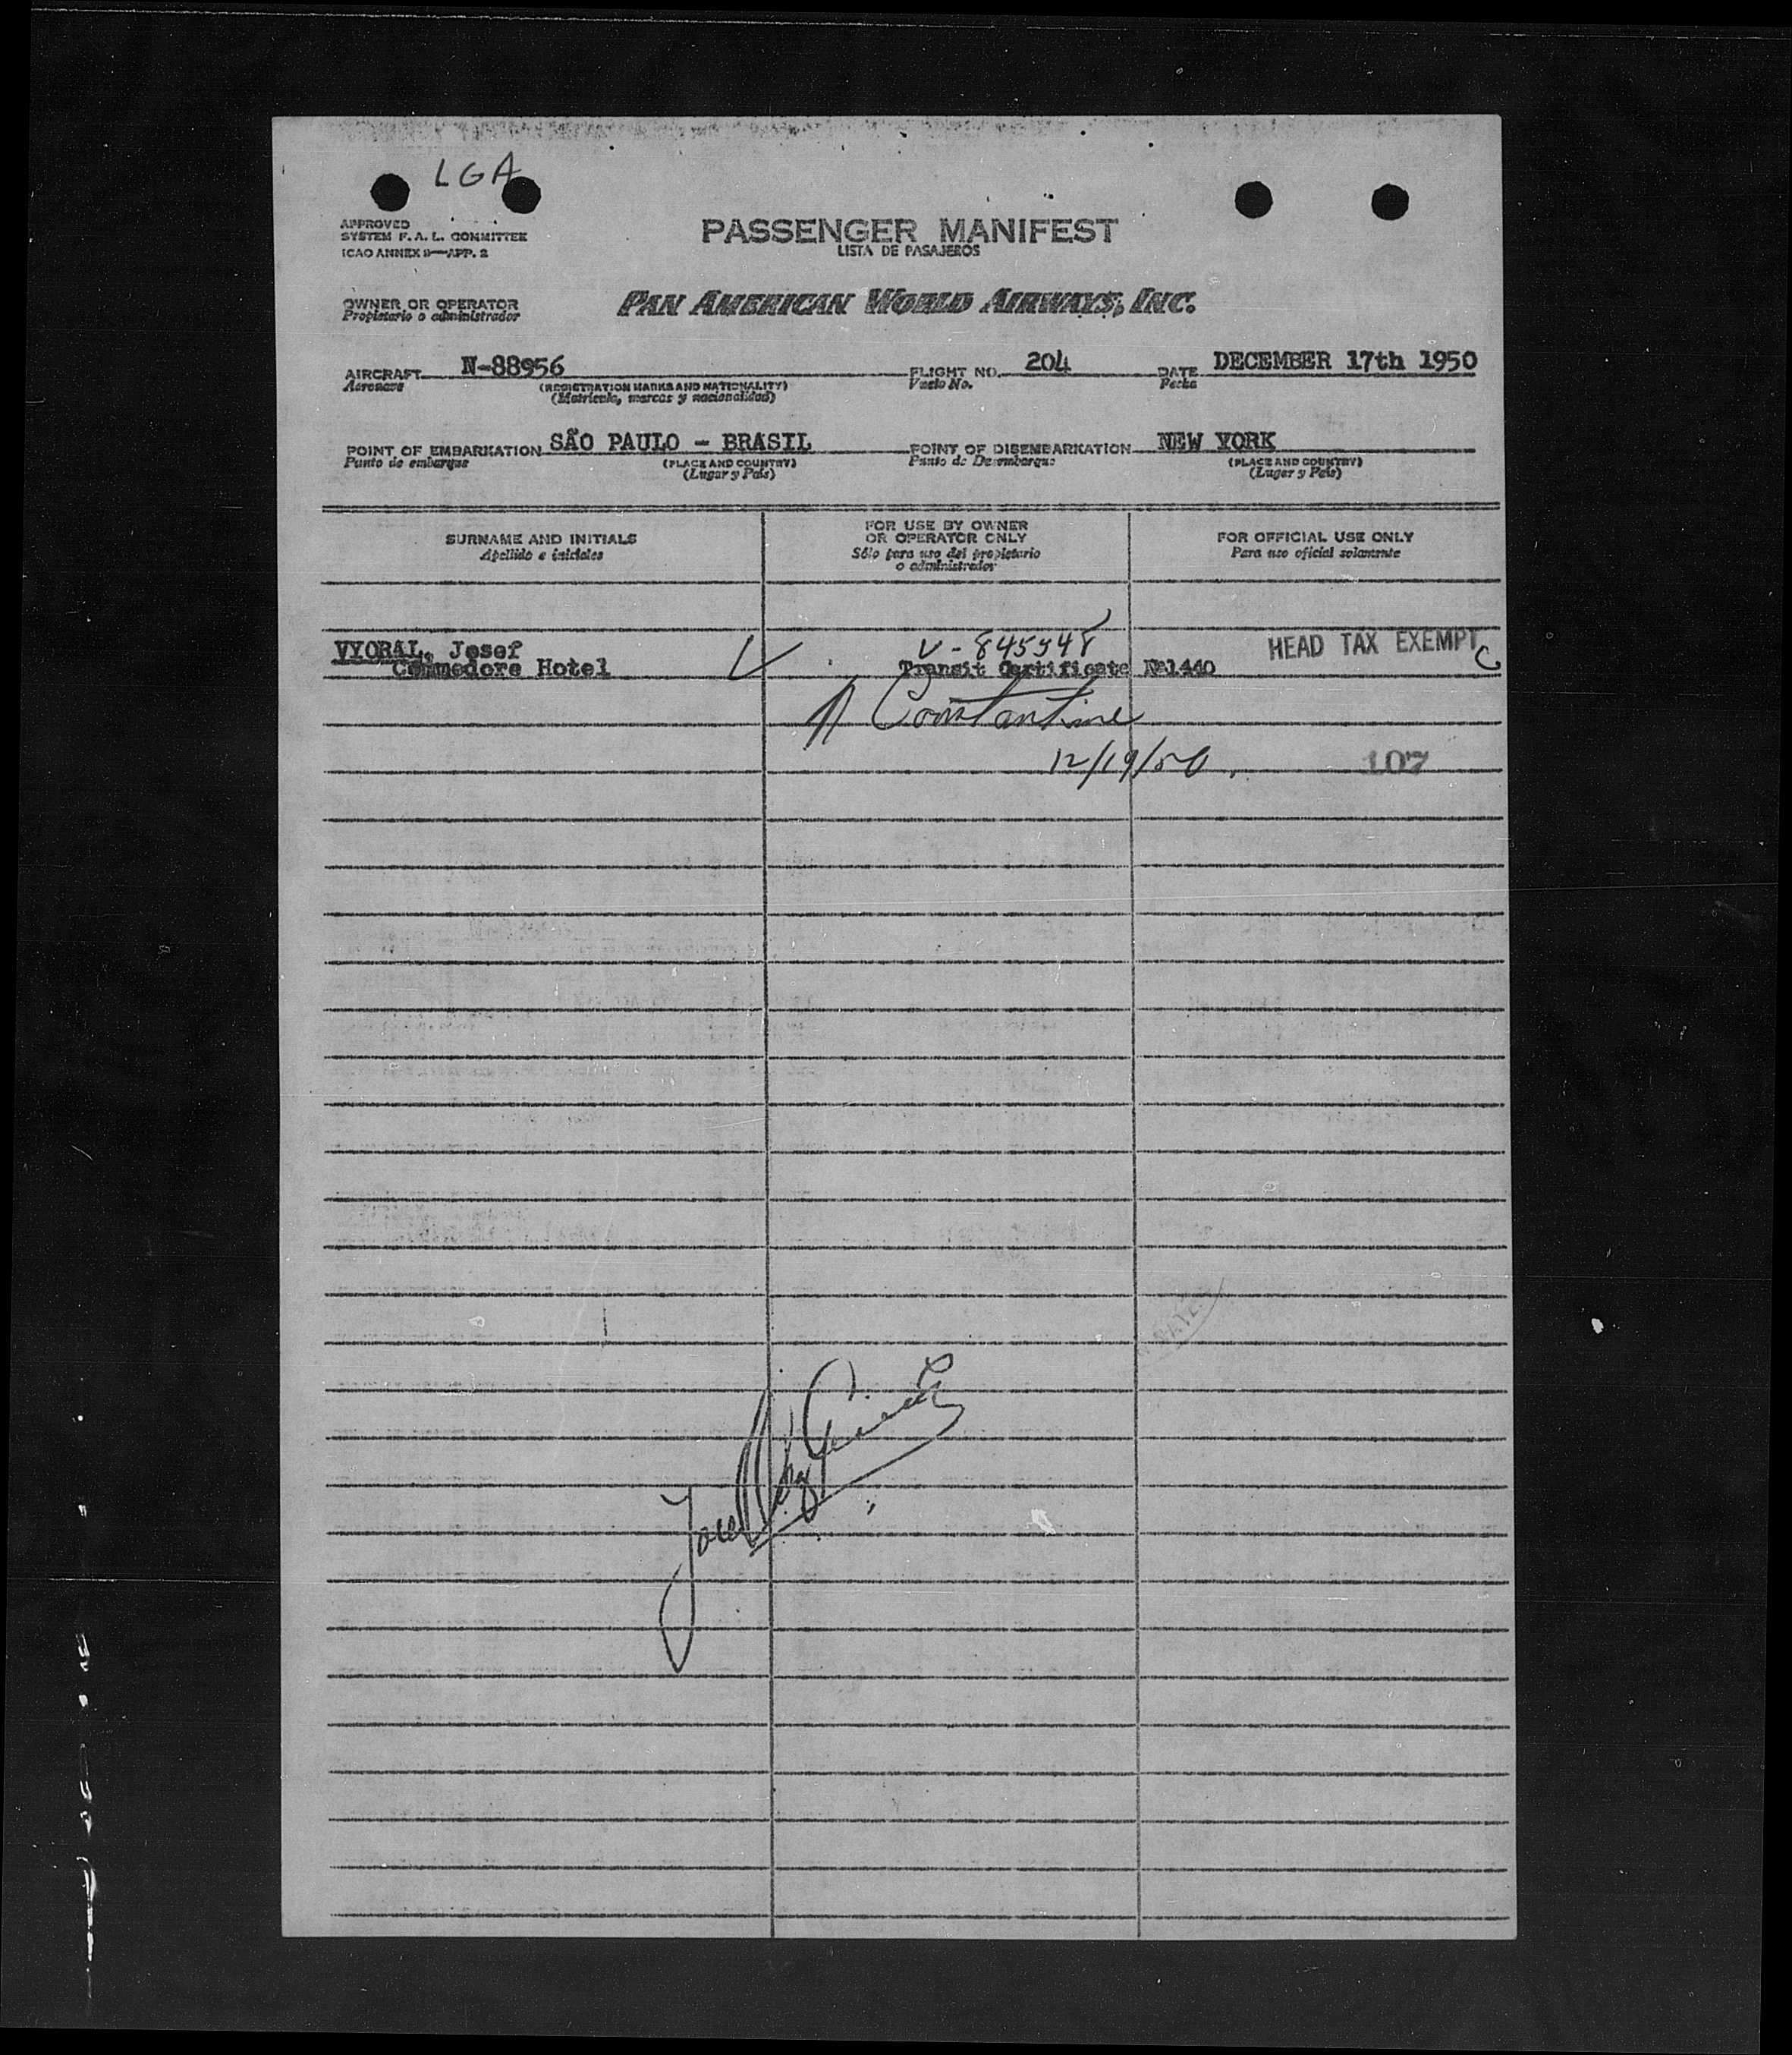 LGA
APPROVED
SYSTEM F. A. L. COMMITTEE
ICAO ANNEX 9—APP. 2
PASSENGER MANIFEST
LISTA DE PASAJEROS
OWNER OR OPERATOR
Propietario o administrador
PAN AMERICAN WORLD AIRWAYS, INC.
AIRCRAFT N-88956 FLIGHT NO. 204 DATE DECEMBER 17th 1950
Aeronave (REGISTRATION MARKS AND NATIONALITY) Vuelo No. Fecha
(Matricula, marcas y nacionalidad)
POINT OF EMBARKATION SÃO PAULO - BRASIL POINT OF DISEMBARKATION NEW YORK
Punto de embarque (PLACE AND COUNTRY) Punto de Desembarque (PLACE AND COUNTRY)
(Lugar y País) (Lugar y País)
SURNAME AND INITIALS
Apellido e iniciales
FOR USE BY OWNER
OR OPERATOR ONLY
Sólo para uso del propietario
o administrador
FOR OFFICIAL USE ONLY
Para uso oficial solamente
VYORAL, Josef V-845948 HEAD TAX EXEMPT C
Commedore Hotel Transit Certificate Nº1440
Constantine
12/19/50 107